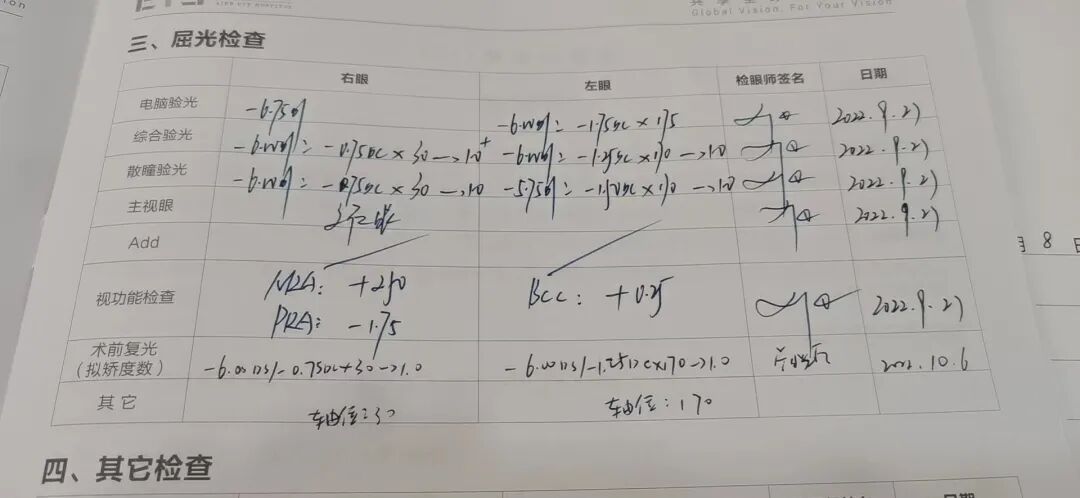 Global Vision, For Your Vision
三、屈光检查
右眼 左眼 检眼师签名 日期
电脑验光 -6.75 -1.75DC×175 2022.9.27
综合验光 -0.75DC×30→1.0⁺ -1.25DC×170→1.0 2022.9.27
散瞳验光 -0.75DC×30→1.0 -5.75 -1.50DC×170→1.0 2022.9.27
主视眼 2022.9.27
Add
视功能检查 NRA: +2.50 BCC: +0.25 2022.9.27
PRA: -1.75
术前复光 -6.00DS/-0.75DC×30→1.0 -6.00DS/-1.25DC×170→1.0 2022.10.6
(拟矫度数)
其它 轴位:30 轴位:170
月 8 日
四、其它检查
日期